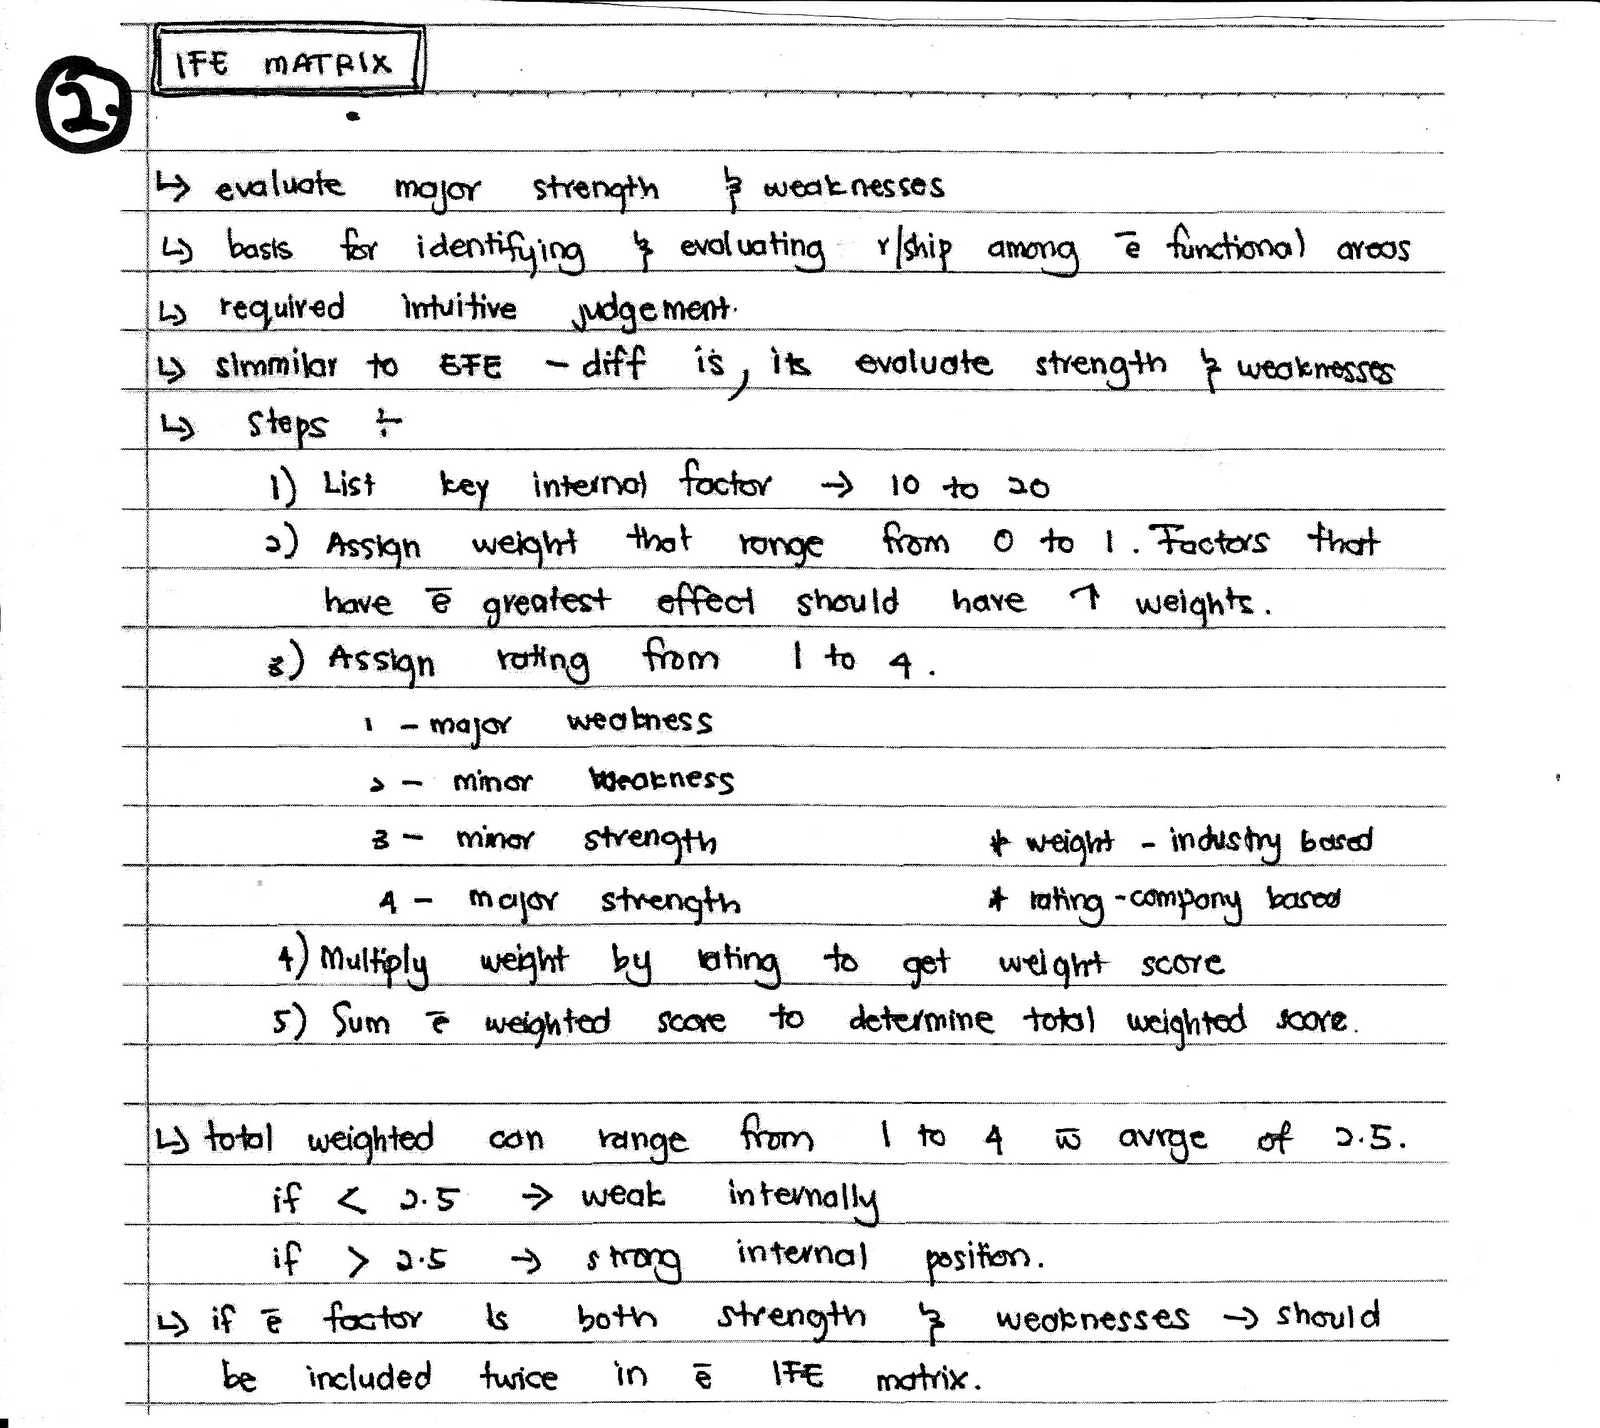 IFE MATRIX
2.
↳ evaluate major strength & weaknesses
↳ basis for identifying & evaluating r/ship among ē functional areas
↳ required intuitive judgement.
↳ simmilar to EFE - diff is, its evaluate strength & weaknesses
↳ Steps ÷
1) List key internal factor → 10 to 20
2) Assign weight that range from 0 to 1. Factors that
have ē greatest effect should have ↑ weights.
3) Assign rating from 1 to 4.
1 - major weakness
2 - minor weakness
3 - minor strength * weight - industry based
4 - major strength * rating - company based
4) Multiply weight by rating to get weight score
5) Sum ē weighted score to determine total weighted score.
↳ total weighted can range from 1 to 4 w̄ avrge of 2.5.
if < 2.5 → weak internally
if > 2.5 → strong internal position.
↳ if ē factor is both strength & weaknesses → should
be included twice in ē IFE matrix.